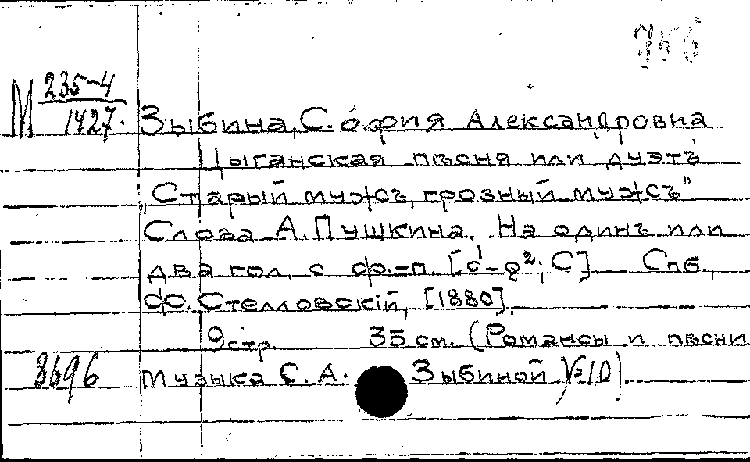 М 235-4
1427.
Зыбина, София Александровна
Цыганская пѣсня или дуэтъ
„Старый мужъ, грозный мужъ"
Слова А. Пушкина. На одинъ или
два гол. с ф.-п. [c¹-g²; C] Спб.,
Ф. Стелловскій, [1880].
9 стр. 35 см. (Романсы и пѣсни
Музыка С. А. Зыбиной № 10)